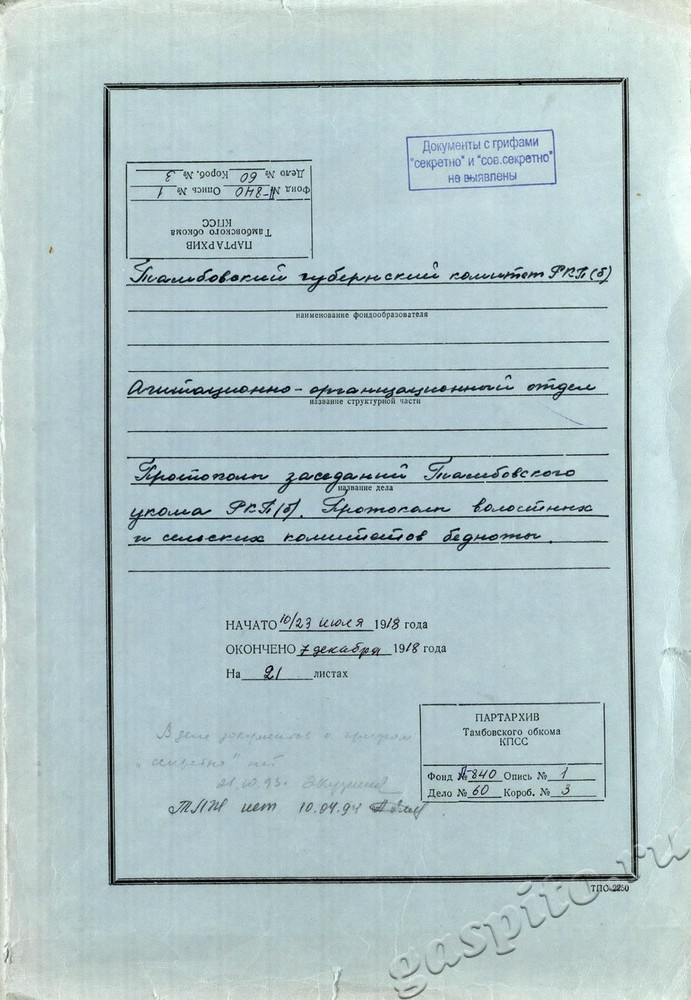 Документы с грифами
"секретно" и "сов.секретно"
не выявлены
ПАРТАРХИВ
Тамбовского обкома
КПСС
Фонд № П-840 Опись № 1
Дело № 60 Короб. № 3
Тамбовский губернский комитет РКП(б)
наименование фондообразователя
Агитационно-организационный отдел
название структурной части
Протоколы заседаний Тамбовского
название дела
укома РКП(б). Протоколы волостных
и сельских комитетов бедноты.
НАЧАТО 10/23 июля 1918 года
ОКОНЧЕНО 7 декабря 1918 года
На 21 листах
В деле документов с грифом
„секретно" нет
21.10.93.
ПАРТАРХИВ
Тамбовского обкома
КПСС
Фонд П-840 Опись № 1
Дело № 60 Короб. № 3
нет 10.04.94
ТПО-2250
gaspito.ru